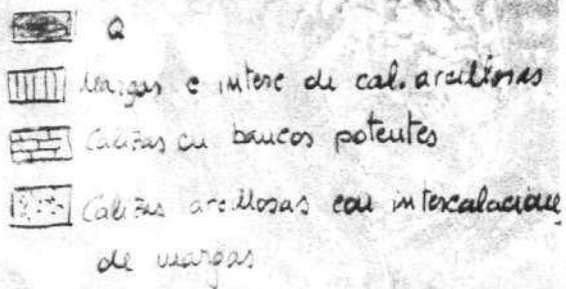 Q
Margas e interc de cal. arcillosas
Calizas en bancos potentes
Calizas arcillosas con intercalacione
de margas